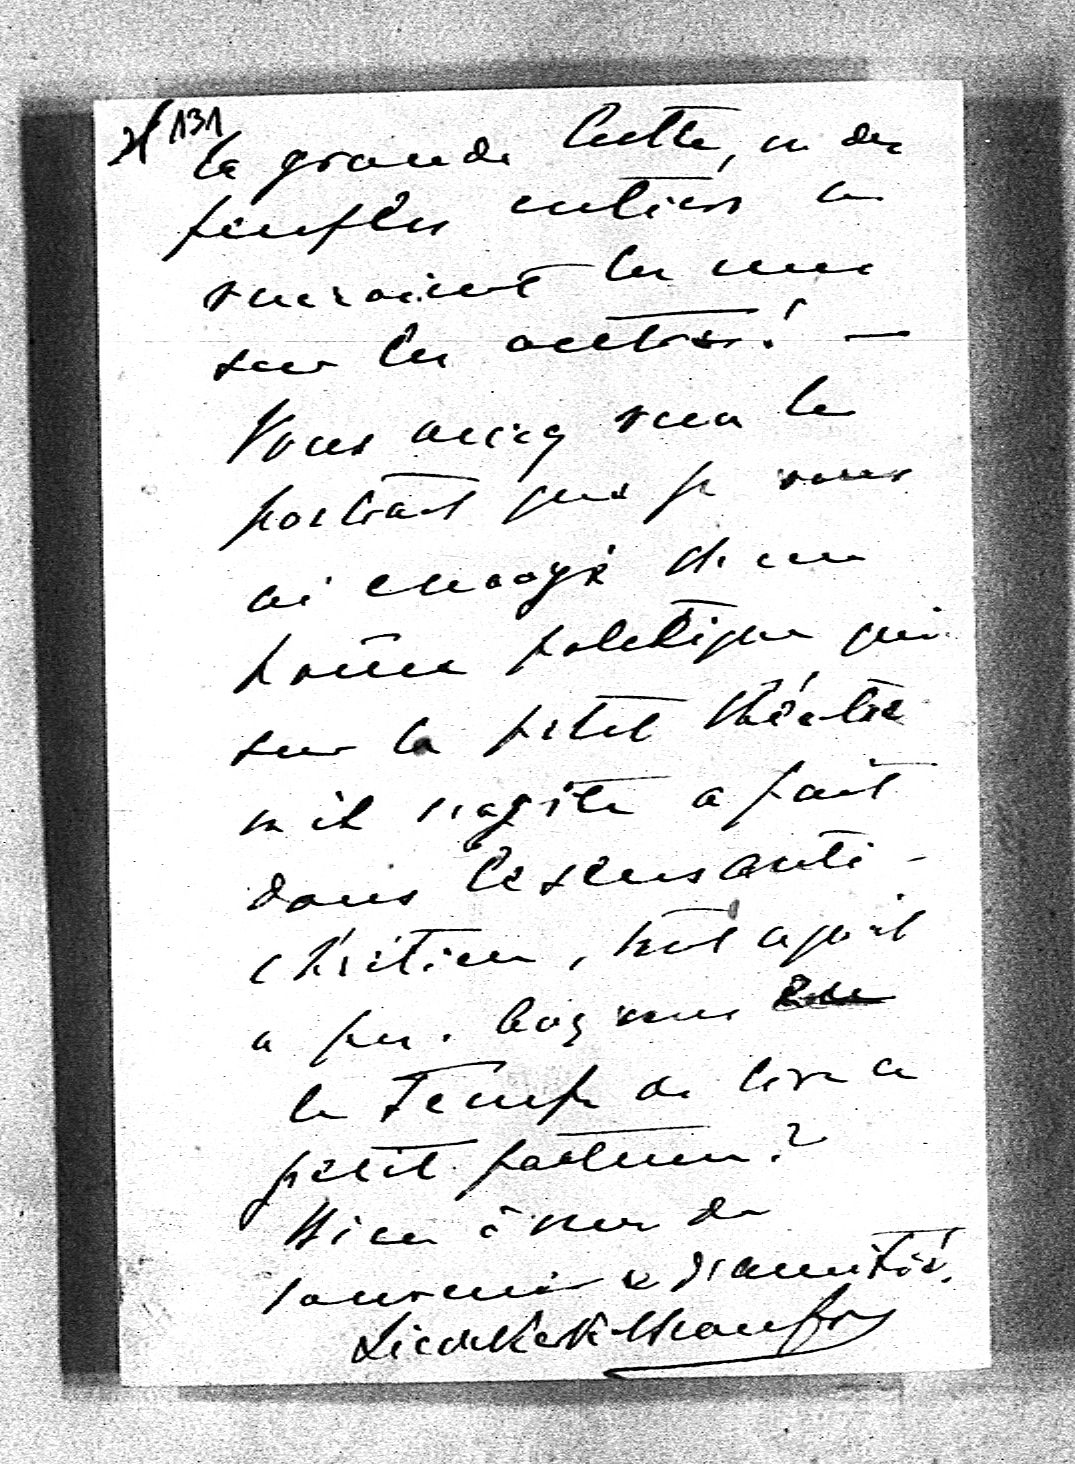 2/ 131
la grande lutte, ou des
peuples entiers se
rueraient les uns
sur les autres! —
Vous aurez reçu le
portrait que je vous
ai envoyé d'un
homme politique qui
sur le petit théâtre
où il s'agite a fait
dans le sens anti-
chrétien, tout ce qu'il
a pu. Avez vous
le temps de lire ce
petit pastum?
Bien à vous de
souvenir & d'amitié.
Liedekerke Beaufort